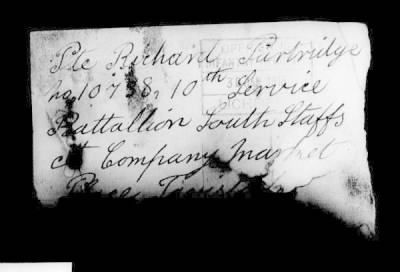 Pte Richard Partridge
no 10738, 10th Service
Battallion South Staffs
A Company Market
Place